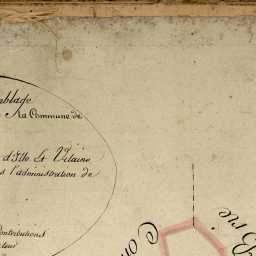 mblage
la Commune de
d'Ille Et Vilaine
s l'administration de
Contributions
cteur
Com
Brie